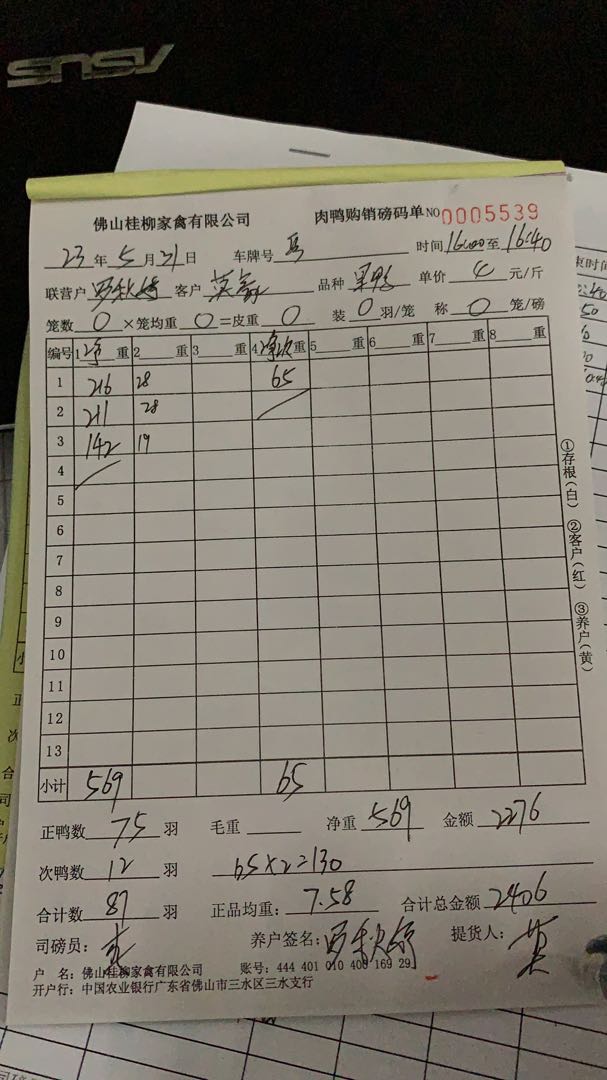 ASUS
佛山桂柳家禽有限公司 肉鸭购销磅码单 NO 0005539
23 年 5 月 21 日 车牌号 时间 16:00 至 16:40
联营户 客户 英 品种 单价 4 元/斤
笼数 0 ×笼均重 0 =皮重 0 装 0 羽/笼 称 0 笼/磅
编号 1 净 重 2 重 3 重 4 净次 重 5 重 6 重 7 重 8 重
1 216 28 65
2 211 28
3 142 19
4
5
6
7
8
9
10
11
12
13
小计 569 65
正鸭数 75 羽 毛重 净重 569 金额 2276
次鸭数 12 羽 65×2=130
合计数 87 羽 正品均重: 7.58 合计总金额 2406
司磅员: 养户签名: 提货人: 英
户 名: 佛山桂柳家禽有限公司 账号: 444 401 010 400 169 29
开户行: 中国农业银行广东省佛山市三水区三水支行
①存根(白) ②客户(红) ③养户(黄)
束时间